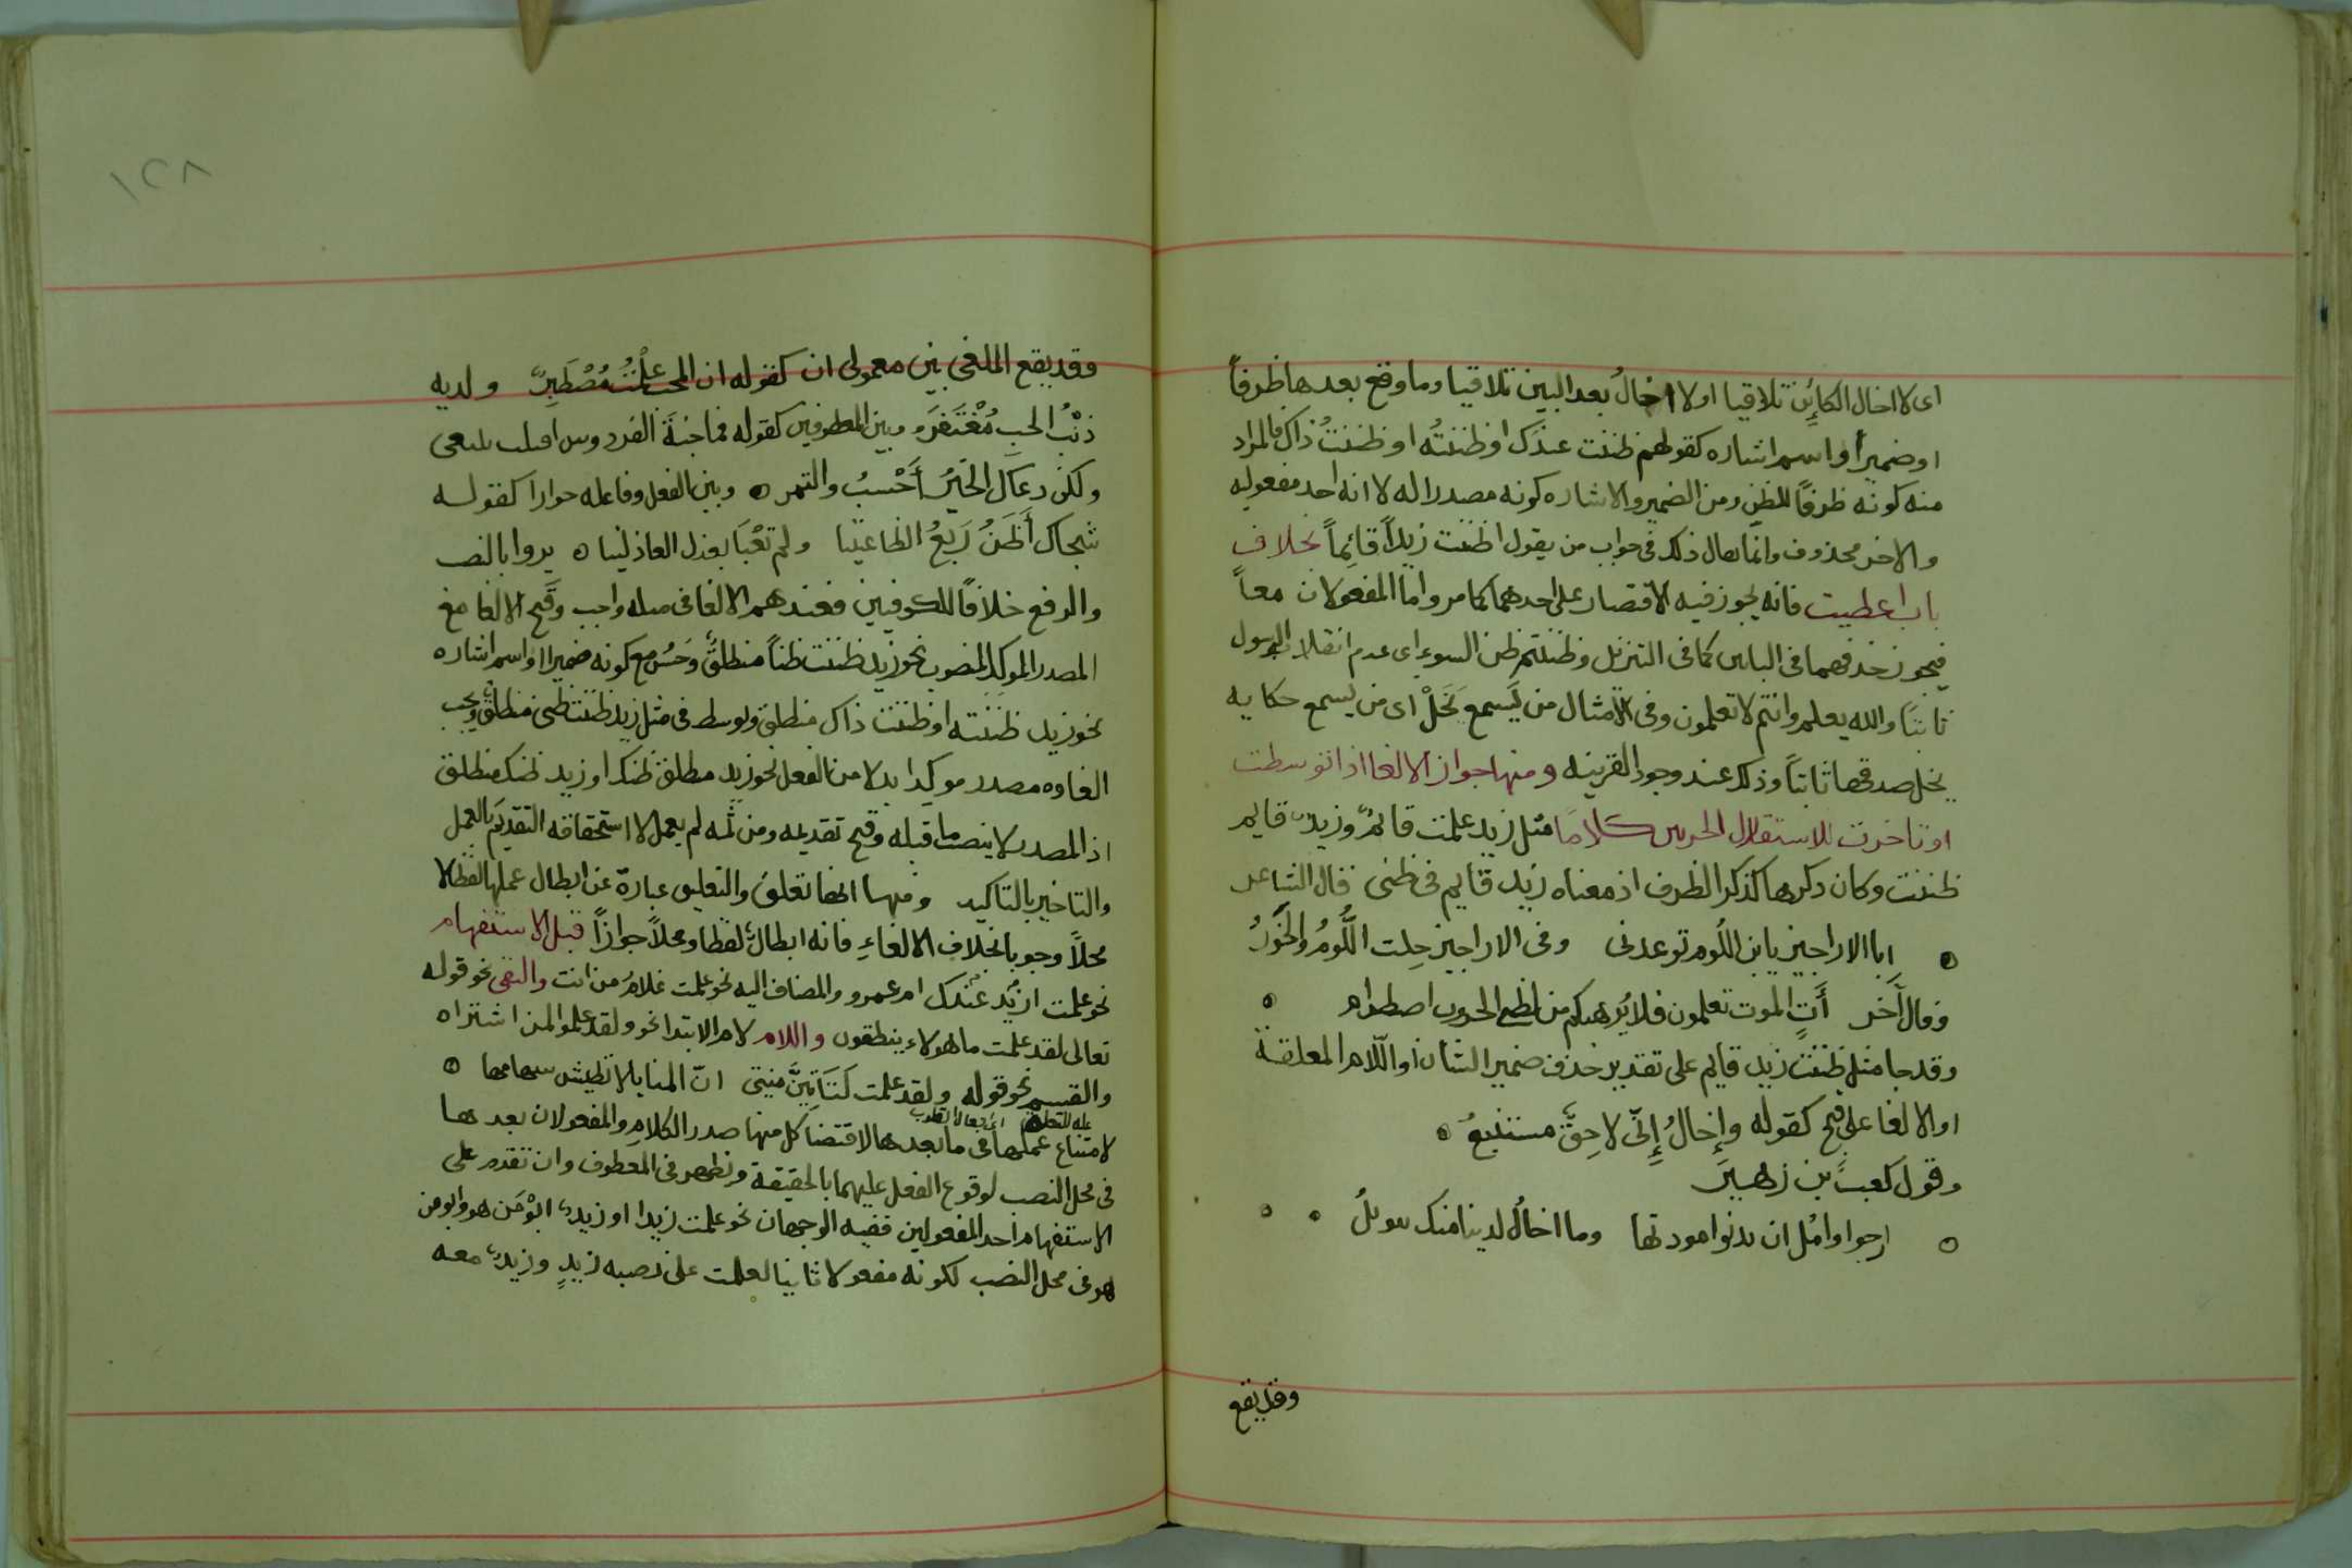 اى لا اخال الكائِن تلاقيا اولا اخالُ بعد البين تلاقيا وما وقع بعدها ظرفاً
او ضميراً او اسم اشاره كقولهم ظننت عندك او ظننتُه او ظننتُ ذاك فالمراد
منه كونه ظرفاً للظن ومن الضمير والاشاره كونه مصدرا له لا انه احد مفعوليه
والاخر محذوف وانما يقال ذلك فى جواب من يقول اظننت زيداً قائِماً بخلاف
باب اعطيت فانه يجوز فيه الاقتصار على احدهما كما مر واما المفعولان معاً
فيجوز حذفهما فى البابين كما فى التنزيل وظننتم ظن السوء اى عدم انقلاب الرسول
ثابتًا والله يعلم وانتم لا تعلمون وفى الامثال من يَسمع يَخَلْ اى من يسمع حكايه
يخل صدقها ثابتاً وذلك عند وجود القرينه ومنها جواز الالغا اذا توسطت
او تاخرت للاستقلال الجزءين كلامًا مثل زيد علمت قائمٌ وزيدٌ قايم
ظننت وكان ذكرها كذكر الظرف اذ معناه زيد قايم فى ظنى قال الشاعر
ابا الاراجيز يا ابن اللُوم توعدنى وفى الاراجيز خِلت اللُّومُ والخَوَرُ
وقال آخر أَتٍ الموت تعلمون فلا يُرهبكم من لظى الحروب اضطرام
وقد جا مثل ظننت زيد قايم على تقدير حذف ضمير الشان او اللّام المعلقة
او الالغا على قبح كقوله وإخالُ إِنّى لاحِقٌ مستتبعُ
وقول كعب بن زهير
ارجوا وامُل ان تدنوا مودتها وما اخالُ لدينا منك تنويلُ
وقد يقع
١٢٨
وقد يقع الملغى بين معمولى ان كقوله ان المحب علمْتُ مُصْطَبِرٌ ولديه
ذنْبُ الحب مُغْتَفَرُ وبين المعطوفين كقوله فما جنةَ الفردوس اقبلت تبتغى
ولكن دعاك الخبزُ أَحْسبُ والتمر وبين الفعل وفاعله جوازا كقوله
شجاك أَظَنُ رَبعُ الظاعنينا ولم تعْبَأ بعذل العاذلينا يروا بالنصب
والرفع خلافًا للكوفيين فعندهم الالغا فى مثله واجب وقَبح الالغا مع
المصدر الموكد المنصوب نحو زيد ظننت ظناً منطلقٌ وحَسُن مع كونه ضميرا او اسم اشاره
نحو زيد ظننته او ظننت ذاك منطلق وتوسط فى مثل زيد ظننت ظنى منطلقٌ ويجب
الغاوه مصدر موكدا بدلا من الفعل نحو زيد منطلق ظنك او زيد ظنك منطلق
اذ المصدر لا ينصب ما قبله وقبح تقديمه ومن ثمه لم يعمل لا استحقاقه التقديم بالعمل
والتاخير بالتاكيد ومنها انها تعلق والتعليق عبارة عن ابطال عملها لفظا لا
محلاً وجوبا بخلاف الالغاءِ فانه ابطالٌ لفظا ومحلاً جوازاً قبل الاستفهام
نحو علمت ازيد عندك ام عمرو والمضاف اليه نحو علمت غلامُ من انت والنفى نحو قوله
تعالى لقد علمت ما هولاء ينطقون واللام لام الابتدا نحو ولقد علموا لمن اشتراه
والقسم نحو قوله ولقد علمت لَتَأتِيَنَّ منيتى انّ المنايا لا تطيش سهامها
عله للتعليق اى افعال القلوب
لامتناع عملها فى ما بعدها لاقتضا كل منها صدر الكلام والمفعولان بعدها
فى محل النصب لوقوع الفعل عليهما بالحقيقة ونظهر فى المعطوف وان تقدم على
الاستفهام احد المفعولين ففيه الوجهان نحو علمت زيدا او زيدٌ ابوُ مَن هو وابو من
هو فى محل النصب لكونه مفعولا ثانيا لعلمت على نصبه زيدٍ وزيدٌ معه